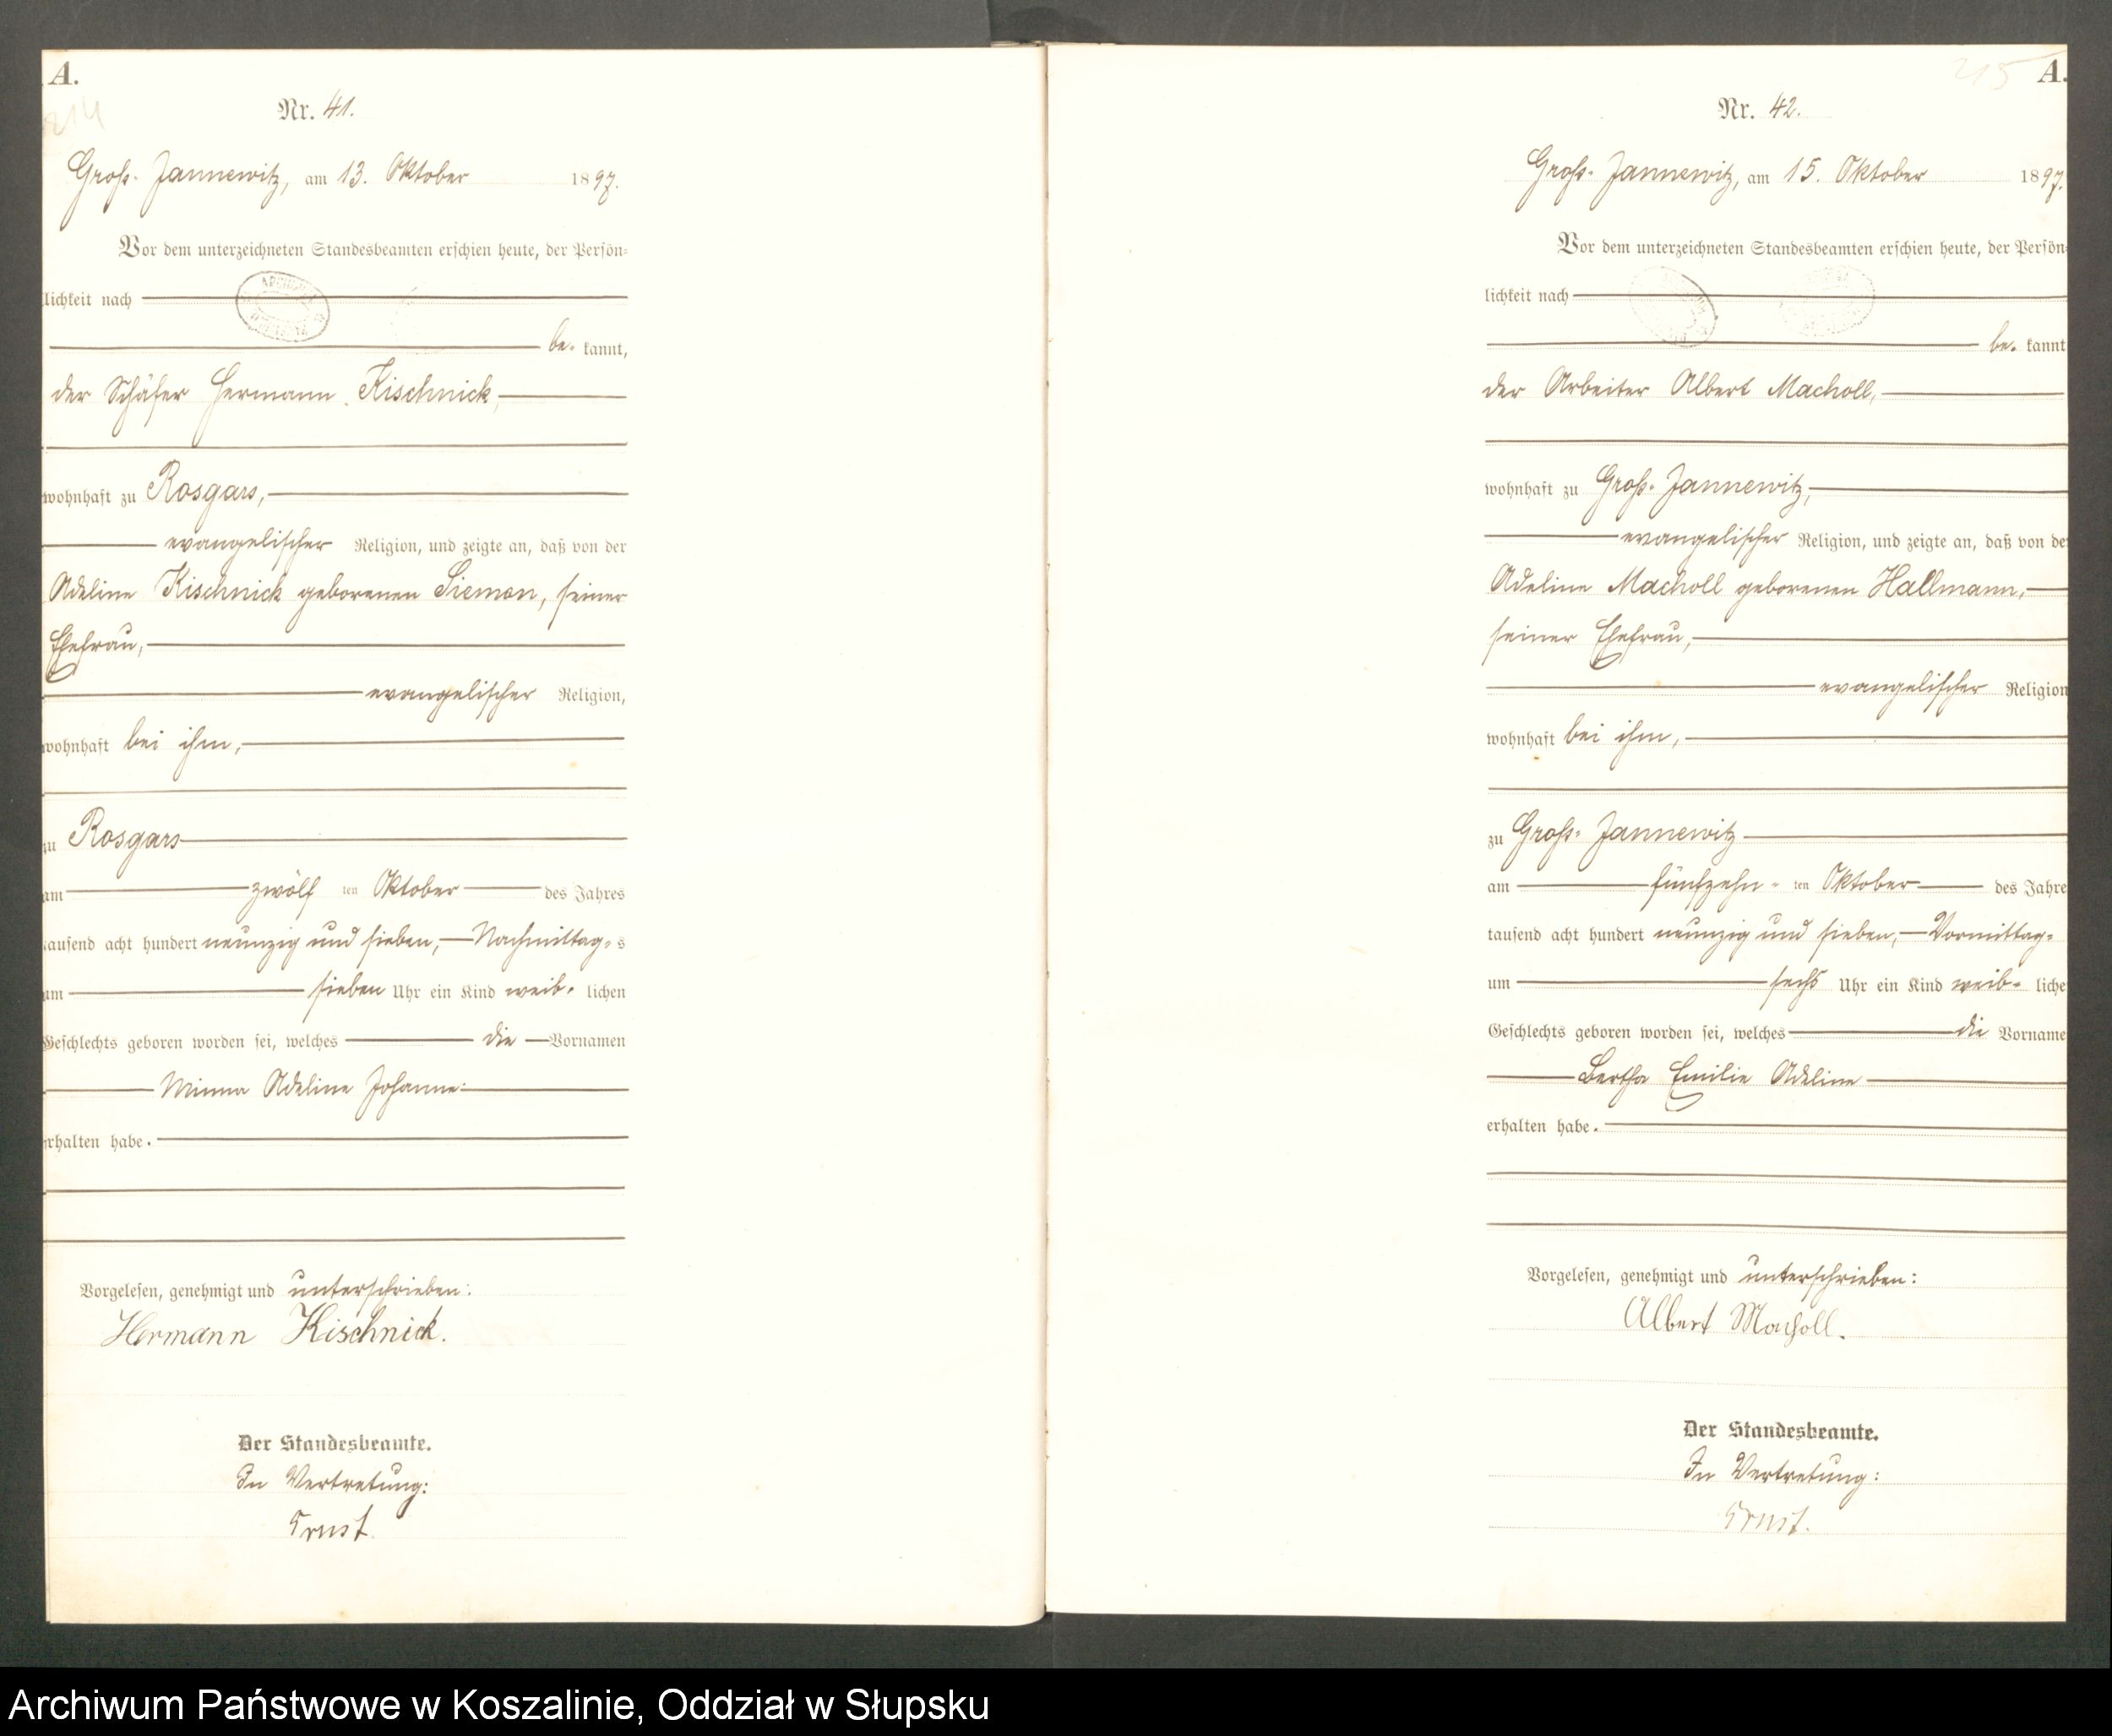 A.
214
Nr. 41.
Groß-Jannewitz, am 13. Oktober 1897.
Vor dem unterzeichneten Standesbeamten erschien heute, der Persön-
lichkeit nach
be- kannt,
der Schäfer Hermann Kischnick,
wohnhaft zu Rosgars,
evangelischer Religion, und zeigte an, daß von der
Adeline Kischnick geborenen Siemon, seiner
Ehefrau,
evangelischer Religion,
wohnhaft bei ihm,
zu Rosgars
am zwölf ten Oktober des Jahres
tausend acht hundert neunzig und sieben, Nachmittag-s
um sieben Uhr ein Kind weib- lichen
Geschlechts geboren worden sei, welches die Vornamen
Minna Adeline Johanne
erhalten habe.
Vorgelesen, genehmigt und unterschrieben:
Hermann Kischnick.
Der Standesbeamte.
In Vertretung:
Ernst.
215 A.
Nr. 42.
Groß-Jannewitz, am 15. Oktober 1897.
Vor dem unterzeichneten Standesbeamten erschien heute, der Persön-
lichkeit nach
be- kannt
der Arbeiter Albert Macholl,
wohnhaft zu Groß-Jannewitz,
evangelischer Religion, und zeigte an, daß von de
Adeline Macholl geborenen Hallmann,
seiner Ehefrau,
evangelischer Religion
wohnhaft bei ihm,
zu Groß-Jannewitz
am fünfzehn- ten Oktober des Jahre
tausend acht hundert neunzig und sieben, Vormittag-
um sechs Uhr ein Kind weib- liche
Geschlechts geboren worden sei, welches die Vorname
Bertha Emilie Adeline
erhalten habe.
Vorgelesen, genehmigt und unterschrieben:
Albert Macholl.
Der Standesbeamte.
In Vertretung:
Ernst.
Archiwum Państwowe w Koszalinie, Oddział w Słupsku